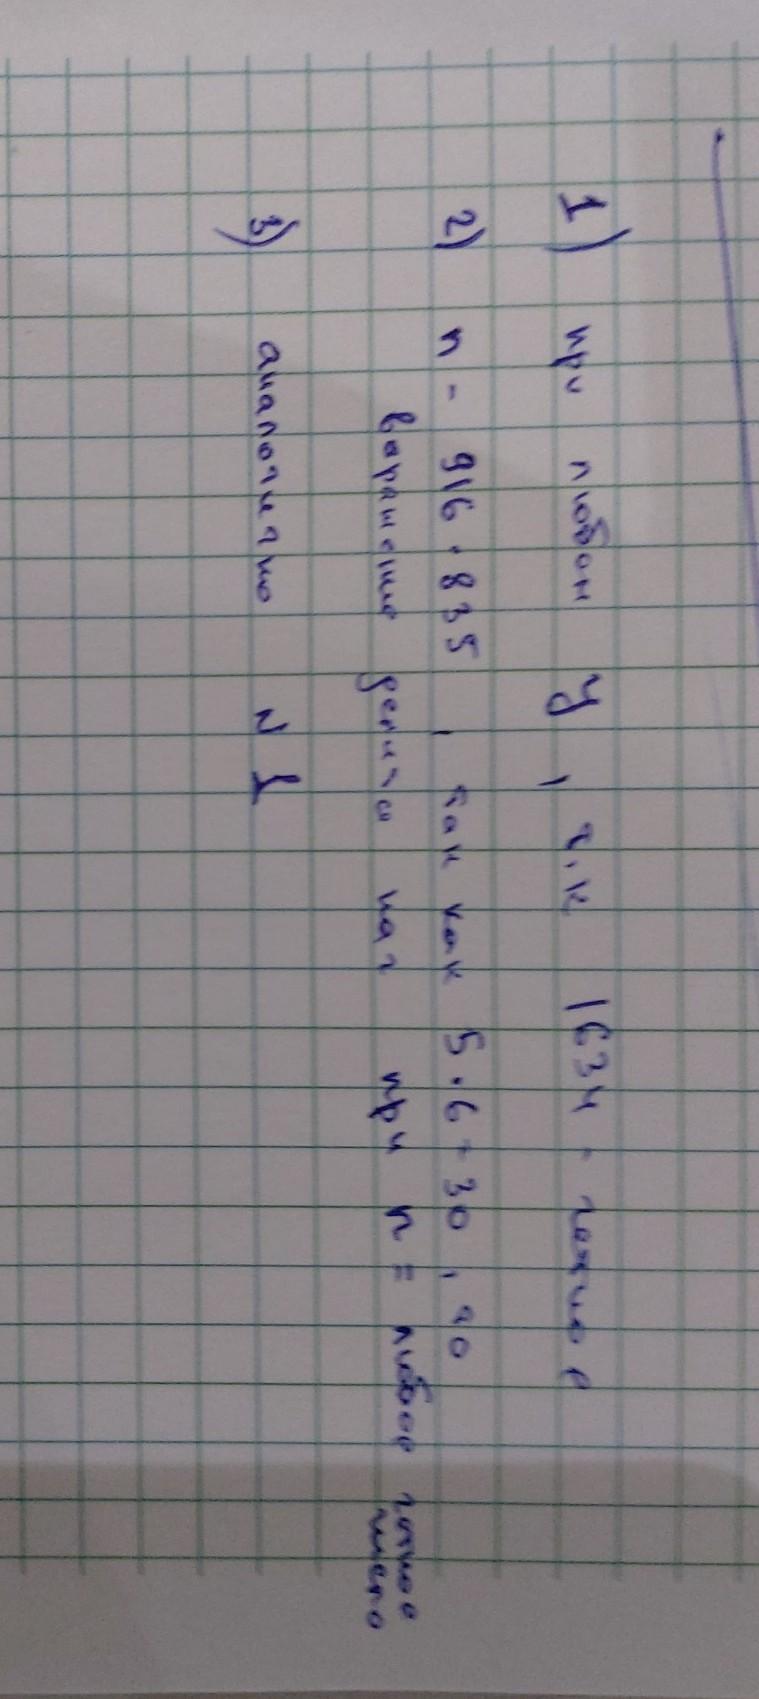 1) при любом y, т.к 1634 - четное
2) n - 916 · 835, так как 5 · 6 = 30, то
варажение делится нат при n = любое четное
число
3) аналогично N 1